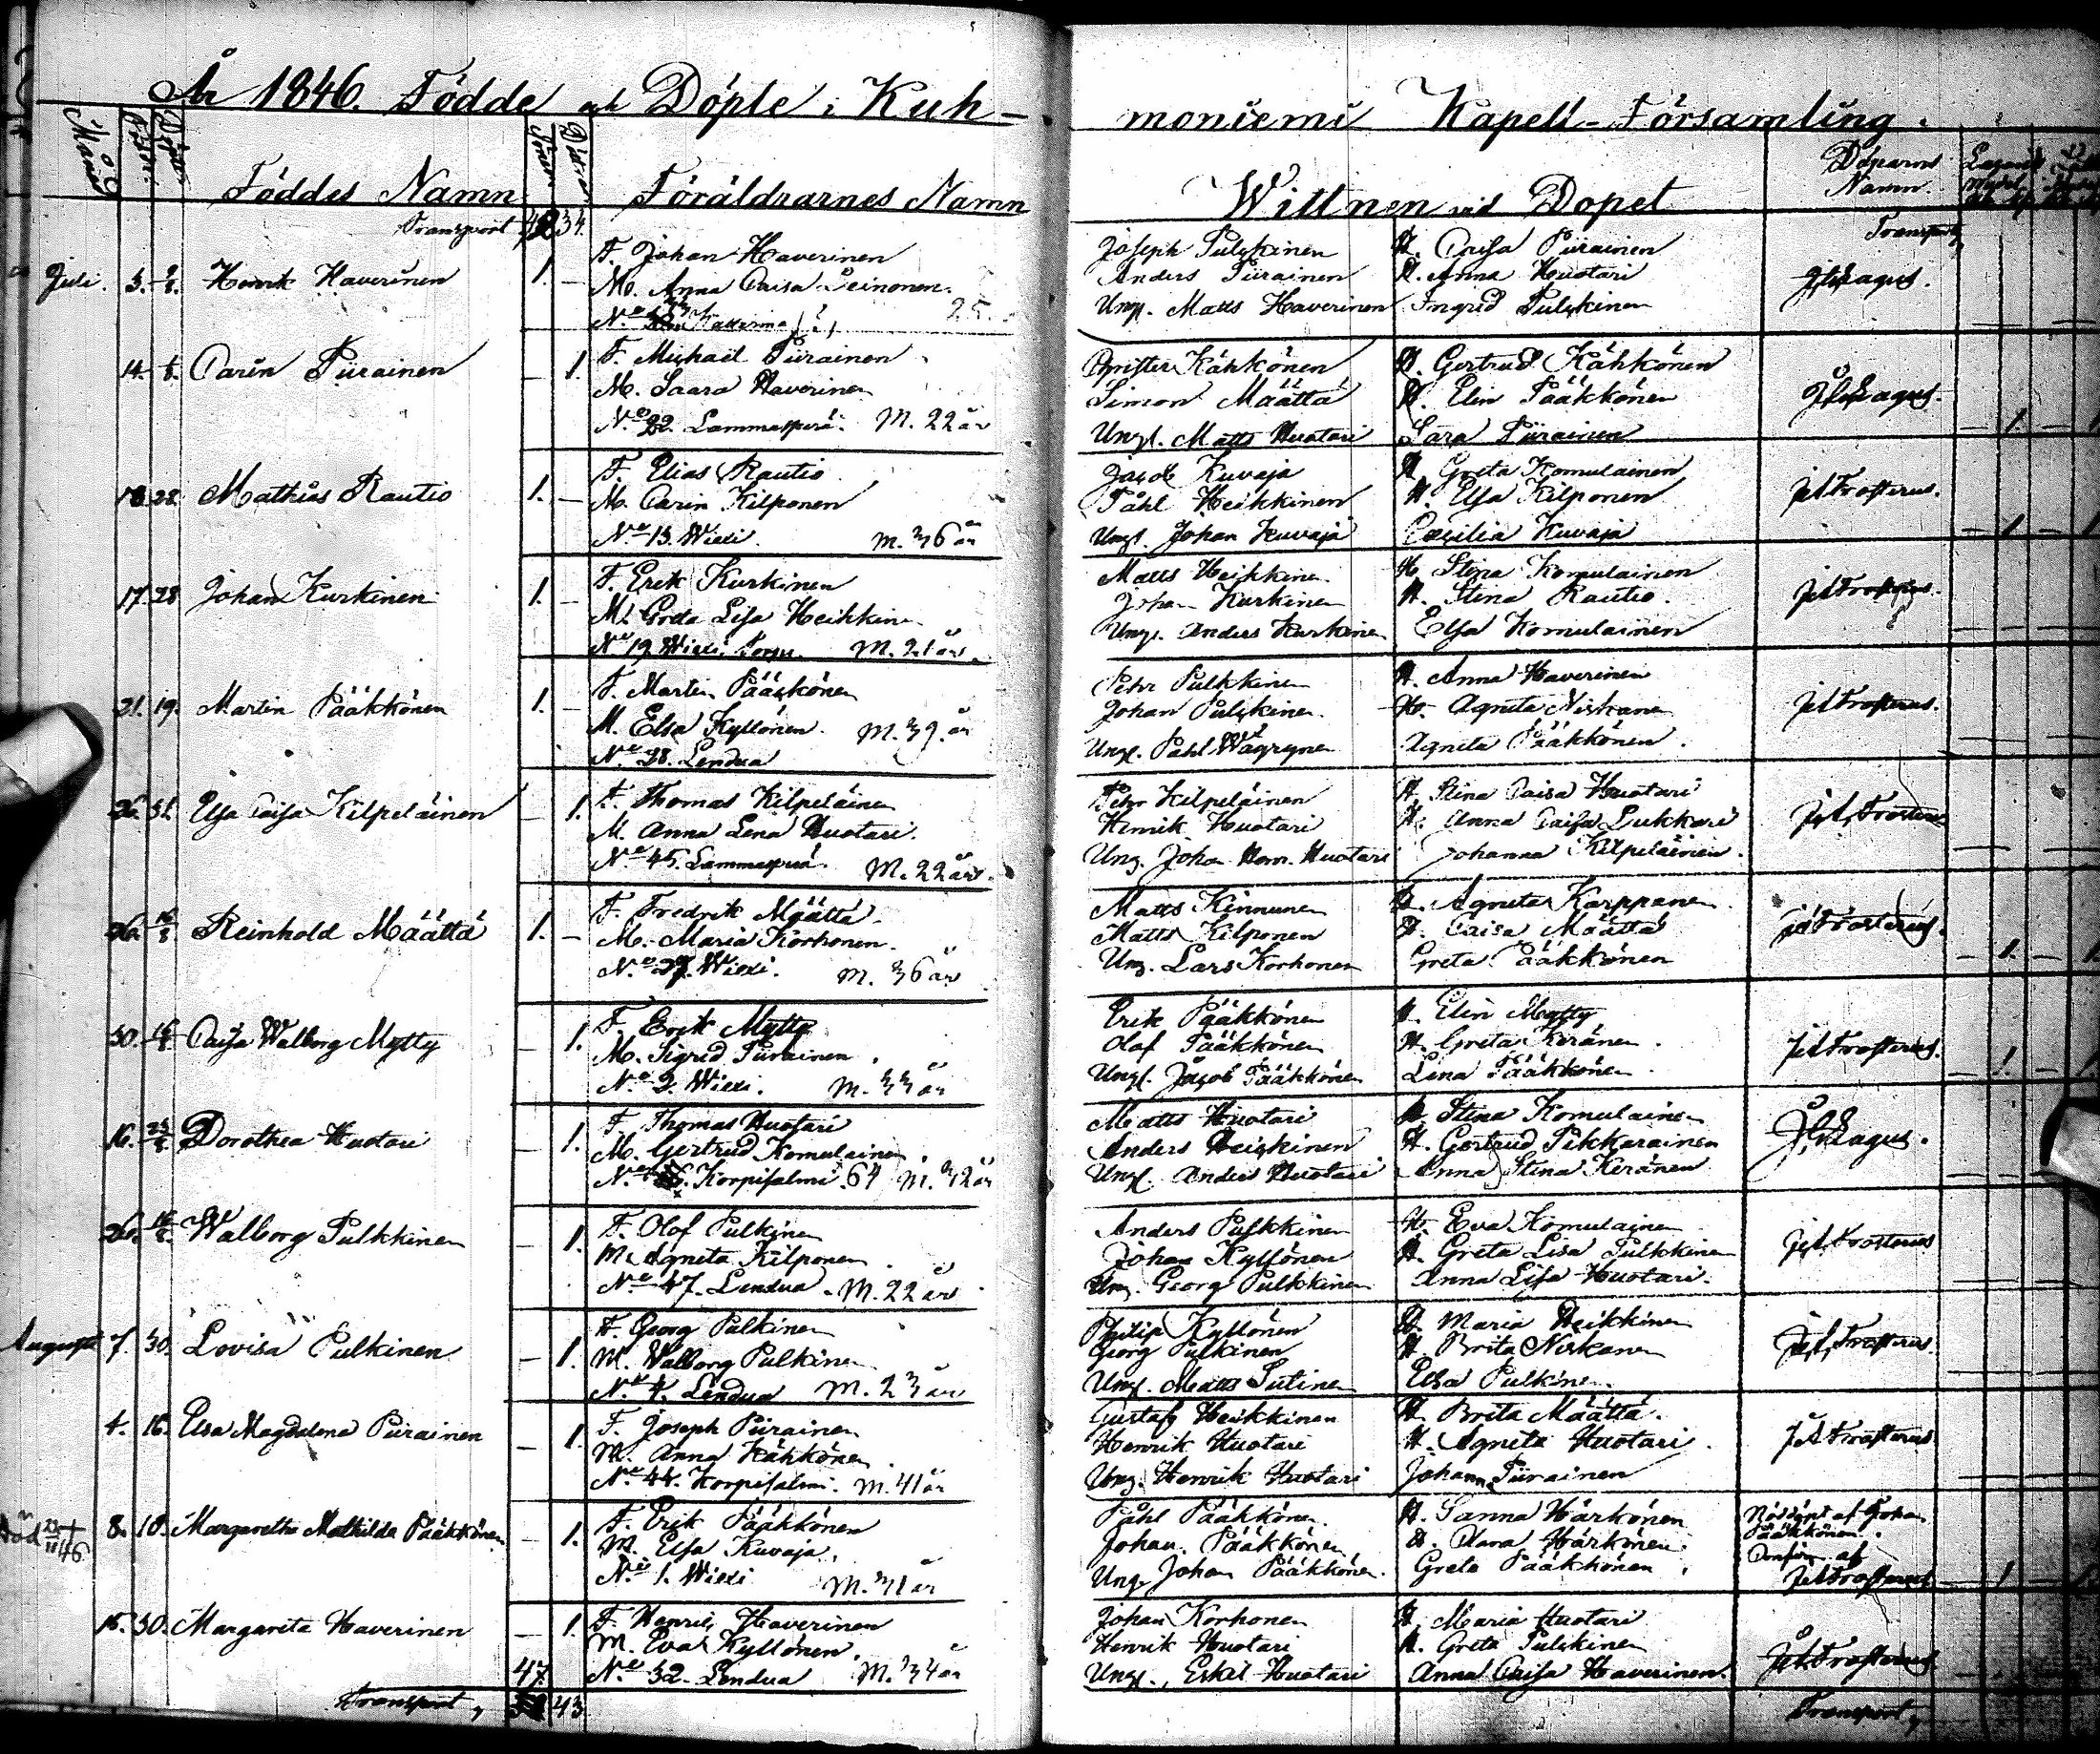 År 1846. Födde och Döpte i Kuh-
moniemi Kapell-Församling.
Månad
Födde
Döpte
Föddes Namn
Söner
Döttrar
Föräldrarnes Namn
Wittnen vid Dopet
Döparens Namn.
Transport 34.
Transport,
Juli. 3. Henrik Haverinen 1. –
F. Johan Haverinen
M. Anna Caisa Leinonen.
25.
Joseph Pulkkinen H. Caisa Piirainen
Anders Piirainen H. Anna Huotari
Ungl. Matts Haverinen Ingrid Pulkkinen
J. Lagus.
14. Carin Piirainen – 1.
F. Michaël Piirainen
M. Saara Haverinen
No 22. Lammasperä. M. 22 år
Christer Kähkönen H. Gertrud Kähkönen
Simon Määttä H. Elin Pääkkönen
Ungl. Matts Huotari Sara Piirainen
J. Lagus.
18. 28. Mathias Rautio 1. –
F. Elias Rautio
M. Carin Kilponen
No 13. Wiexi. M. 36 år
Jacob Kuvaja H. Greta Komulainen
Påhl Heikkinen H. Elsa Kilponen
Ungl. Johan Kuvaja Cæcilia Kuvaja
Frosterus.
17. 28 Johan Kurkinen 1. –
F. Erik Kurkinen
M. Greta Lisa Heikkinen
No 19 Wiexi M. 21 år
Matts Heikkinen H. Stina Komulainen
Johan Kurkinen H. Stina Rautio.
Ungl. Anders Kurkinen Elsa Komulainen
Frosterus.
21. 19. Martin Pääkkönen 1. –
F. Martin Pääkkönen
M. Elsa Kyllönen. M. 39. år
No 28. Lendua
Petr Pulkkinen H. Anna Haverinen
Johan Pulkkinen. H. Agneta Niskanen
Ungl. Påhl Wäyrynen Agneta Pääkkönen.
Frosterus.
26. 31. Elsa Caisa Kilpeläinen – 1.
F. Thomas Kilpeläinen
M. Anna Lena Huotari.
No 45. Lammasperä. M. 22 år.
Petr Kilpeläinen H. Stina Caisa Huotari
Henrik Huotari H. Anna Caisa Lukkari
Ung. Johan Henr. Huotari Johanna Kilpeläinen.
Frosterus
26. 16/8 Reinhold Määttä 1. –
F. Fredrik Määttä
M. Maria Korhonen.
No 27. Wiexi. M. 36 år
Matts Kinnunen H. Agneta Karppanen.
Matts Kilponen H. Caisa Määttä
Ung. Lars Korhonen Greta Pääkkönen
Frosterus.
30. Caisa Walborg Mytty – 1.
F. Erik Mytty
M. Sigrid Piirainen.
No 2. Wiexi. M. 33 år
Erik Pääkkönen H. Elin Mytty
Olof Pääkkönen H. Greta Keränen.
Ungl. Jacob Pääkkönen Lena Pääkkönen.
Frosterus.
16. Dorothea Huotari – 1.
F. Thomas Huotari
M. Gertrud Komulainen.
Korpisalmi. 64 M. 42 år
Matts Huotari H. Stina Komulainen
Anders Heiskinen H. Gertrud Pikkarainen
Ungl. Anders Huotari Anna Stina Keränen
J. Lagus.
26. 16/8. Walborg Pulkkinen – 1.
F. Olof Pulkinen
M. Agneta Kilponen.
No 47. Lendua. M. 22 år
Anders Pulkkinen H. Eva Komulainen
Johan Kyllönen H. Greta Lisa Pulkkinen
Ung. Georg Pulkkinen Anna Lisa Huotari.
Frosterus
Augusti 7. 30. Lovisa Pulkinen – 1.
F. Georg Pulkinen
M. Walborg Pulkinen
No 4. Lendua M. 23 år
Philip Kyllönen H. Maria Heikkinen
Georg Pulkinen H. Brita Niskanen
Ungl. Matts Sutinen Elsa Pulkinen.
Frosterus.
4. 16. Elsa Magdalena Piirainen – 1.
F. Joseph Piirainen
M. Anna Kähkönen.
No 44. Korpisalmi. M. 41 år
Gustaf Heikkinen H. Brita Määttä.
Henrik Huotari H. Agneta Huotari.
Ung. Henrik Huotari Johanna Piirainen
Frosterus
Död 23/11 46 8. 10. Margaretha Mathilda Pääkkönen – 1.
F. Erik Pääkkönen
M. Elsa Kuvaja.
No 1. Wiexi M. 31 år
Påhl Pääkkönen. H. Sanna Härkönen
Johan Pääkkönen H. Clara Härkönen.
Ung. Johan Pääkkönen. Greta Pääkkönen.
Nöddöpt af Johan Pääkkönen.
Confirm. af Frosterus
15. 30. Margareta Haverinen – 1.
F. Henric Haverinen
M. Eva Kyllönen.
No 32. Lendua M. 34 år
Johan Korhonen H. Maria Huotari
Henrik Huotari H. Greta Pulkinen
Ungl. Eskil Huotari Anna Caisa Haverinen.
Frosterus
Transport, 47 43
Transport,